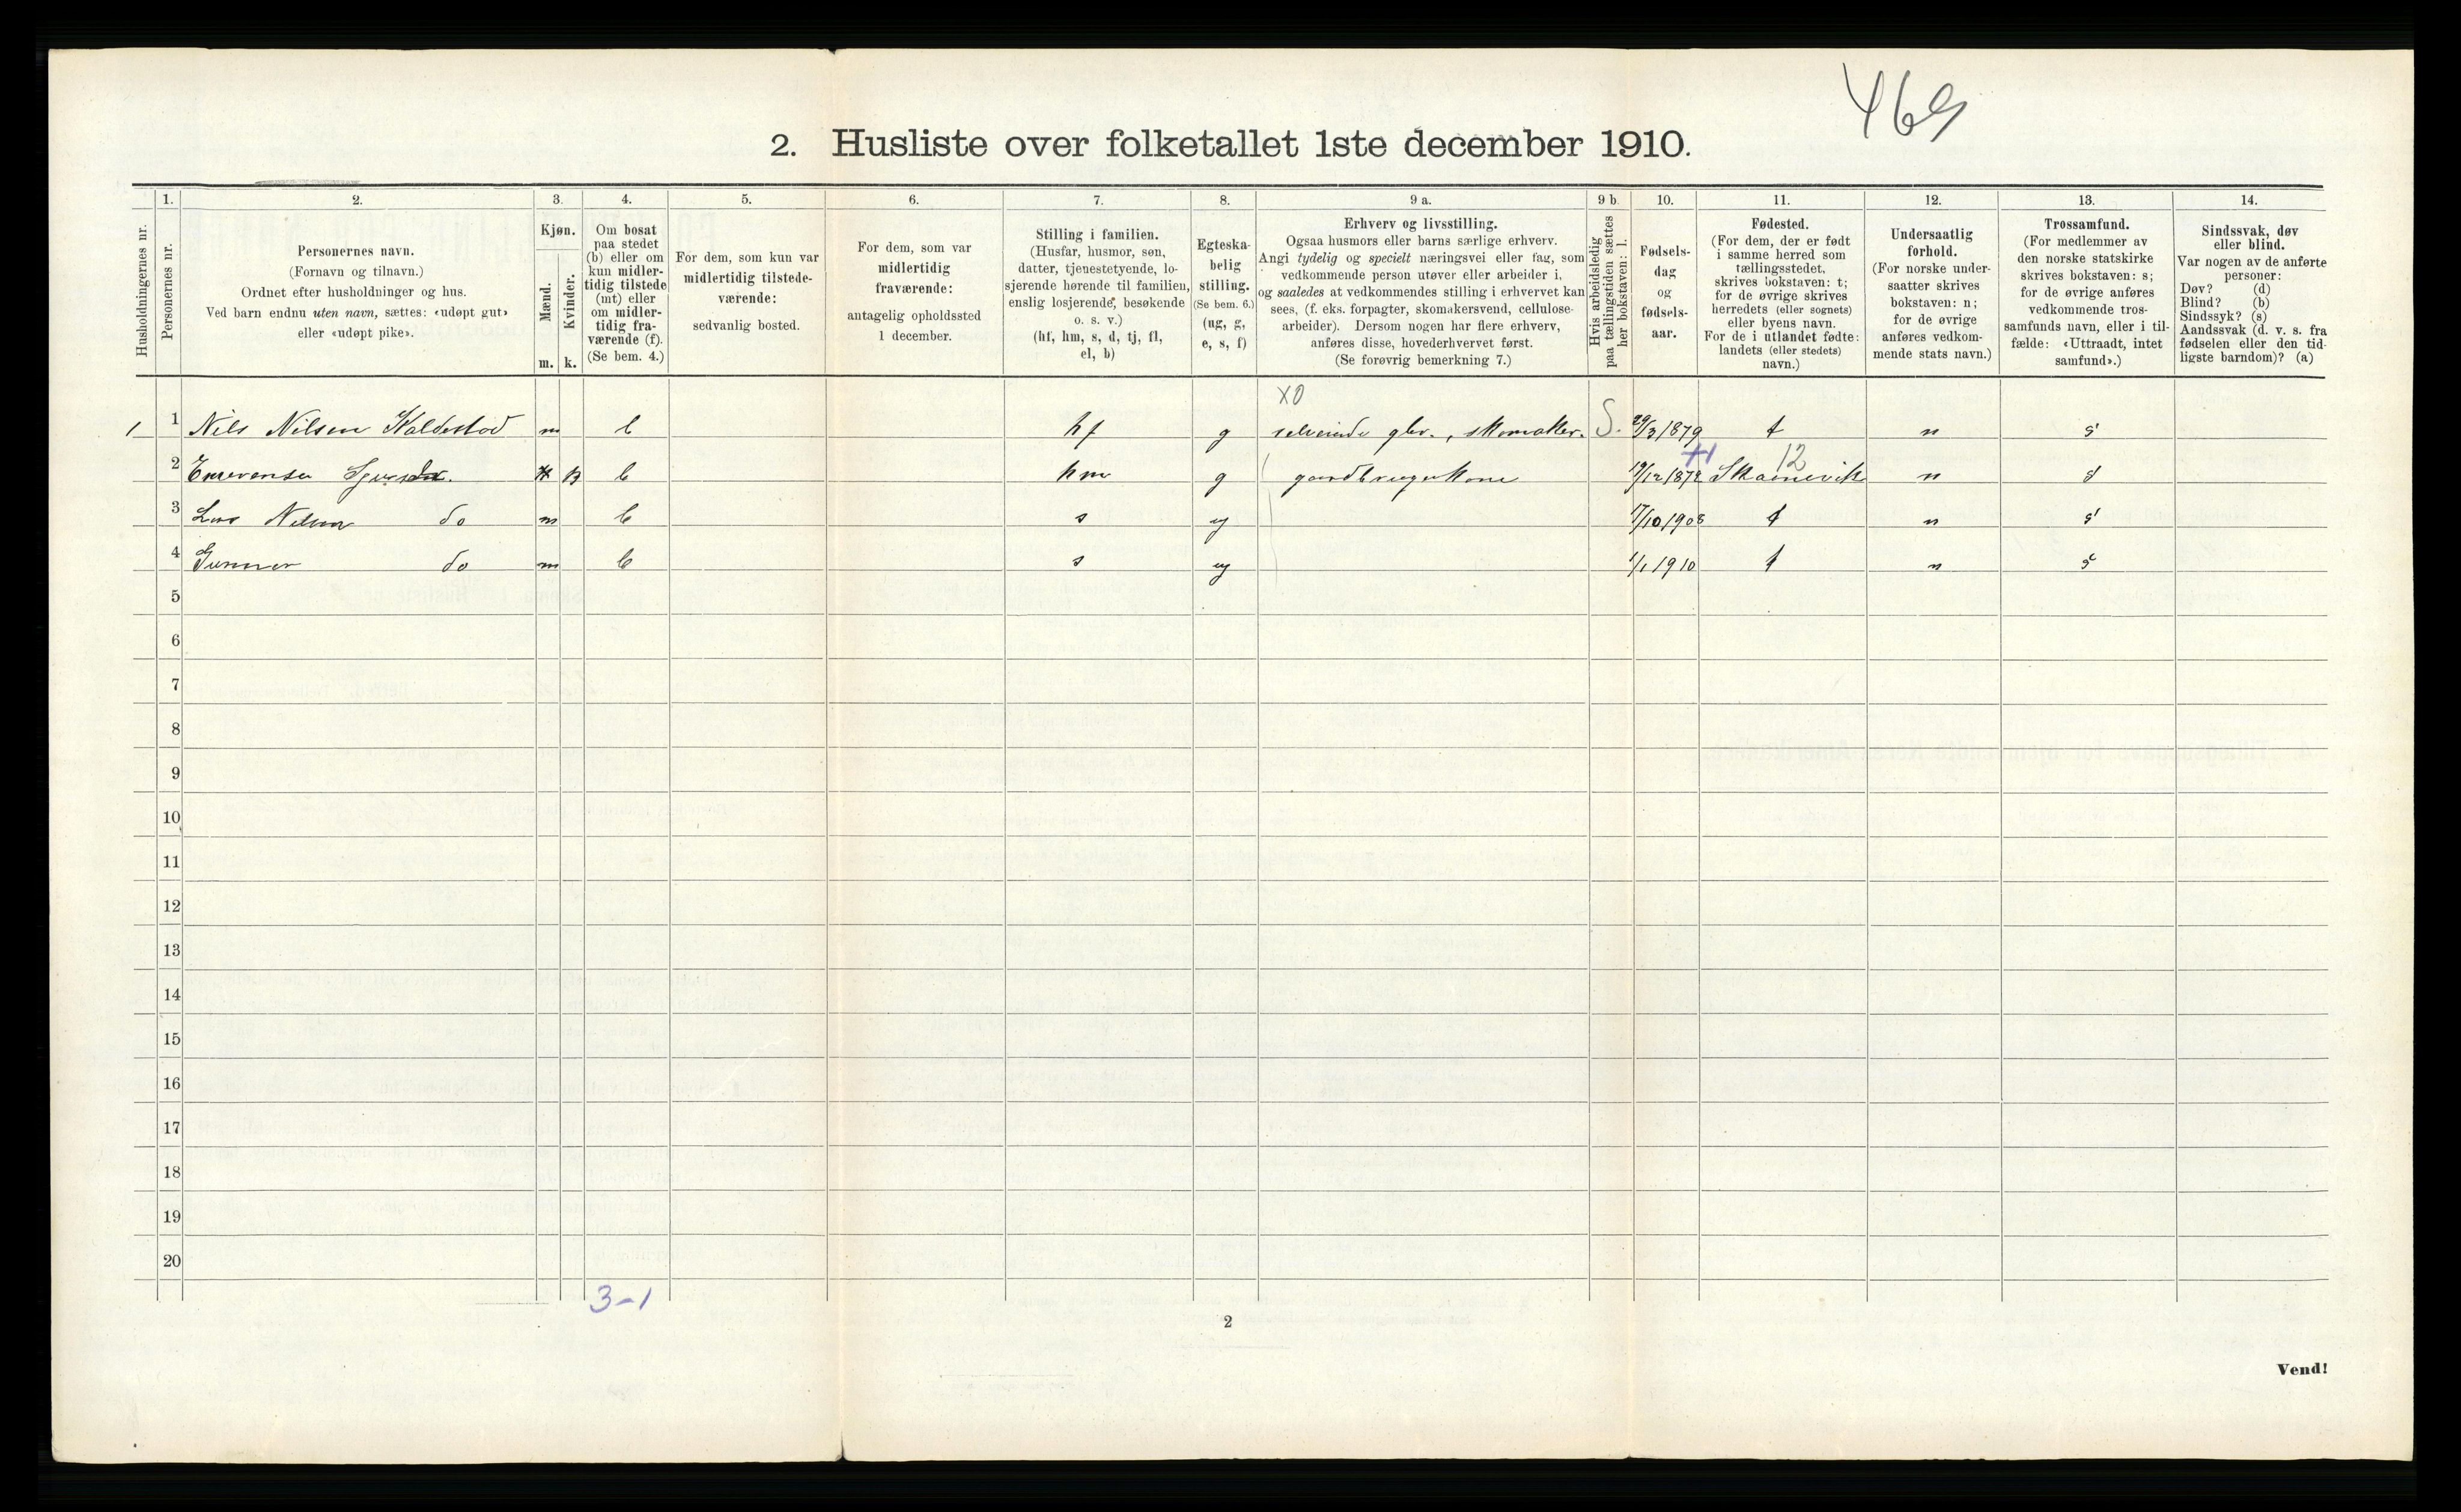 469
2. Husliste over folketallet 1ste december 1910.
Husholdningernes nr.
1.
Personernes nr.
2.
Personernes navn.
(Fornavn og tilnavn.)
Ordnet efter husholdninger og hus.
Ved barn endnu uten navn, sættes: «udøpt gut»
eller «udøpt pike».
3.
Kjøn.
Mænd.
Kvinder.
m. k.
4.
Om bosat
paa stedet
(b) eller om
kun midler-
tidig tilstede
(mt) eller
om midler-
tidig fra-
værende (f).
(Se bem. 4.)
5.
For dem, som kun var
midlertidig tilstede-
værende:
sedvanlig bosted.
6.
For dem, som var
midlertidig
fraværende:
antagelig opholdssted
1 december.
7.
Stilling i familien.
(Husfar, husmor, søn,
datter, tjenestetyende, lo-
sjerende hørende til familien,
enslig losjerende, besøkende
o. s. v.)
(hf, hm, s, d, tj, fl,
el, b)
8.
Egteska-
belig
stilling.
(Se bem. 6.)
(ug, g,
e, s, f)
9 a.
Erhverv og livsstilling.
Ogsaa husmors eller barns særlige erhverv.
Angi tydelig og specielt næringsvei eller fag, som
vedkommende person utøver eller arbeider i,
og saaledes at vedkommendes stilling i erhvervet kan
sees, (f. eks. forpagter, skomakersvend, cellulose-
arbeider). Dersom nogen har flere erhverv,
anføres disse, hovederhvervet først.
(Se forøvrig bemerkning 7.)
9 b.
Hvis arbeidsledig
paa tællingstiden sættes
her bokstaven: l.
10.
Fødsels-
dag
og
fødsels-
aar.
11.
Fødested.
(For dem, der er født
i samme herred som
tællingsstedet,
skrives bokstaven: t;
for de øvrige skrives
herredets (eller sognets)
eller byens navn.
For de i utlandet fødte:
landets (eller stedets)
navn.)
12.
Undersaatlig
forhold.
(For norske under-
saatter skrives
bokstaven: n;
for de øvrige
anføres vedkom-
mende stats navn.)
13.
Trossamfund.
(For medlemmer av
den norske statskirke
skrives bokstaven: s;
for de øvrige anføres
vedkommende tros-
samfunds navn, eller i til-
fælde: «Uttraadt, intet
samfund».)
14.
Sindssvak, døv
eller blind.
Var nogen av de anførte
personer:
Døv? (d)
Blind? (b)
Sindssyk? (s)
Aandssvak (d. v. s. fra
fødselen eller den tid-
ligste barndom)? (a)
X0
1 1 Nils Nilsen Kaldestad m b hf g selveiende gbr., skomaker. S. 29/3 1879 t n s
12
2 k b hm g gaardbrugerkone 19/12 1872 Skaanevik n s
3 Lars Nilsen do m b s ug 17/10 1908 t n s
4 Gunnar do m b s ug 1/1 1910 t n s
5
6
7
8
9
10
11
12
13
14
15
16
17
18
19
20
3-1
2
Vend!